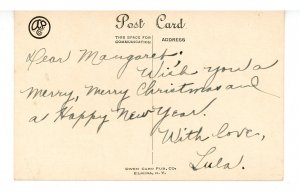 Post Card
THIS SPACE FOR
COMMUNICATION
ADDRESS
Dear Margaret:
Wish you a
Merry, Merry Christmas and
a Happy New Year.
With love,
Lula.
OWEN CARD PUB. CO.
ELMIRA, N.Y.